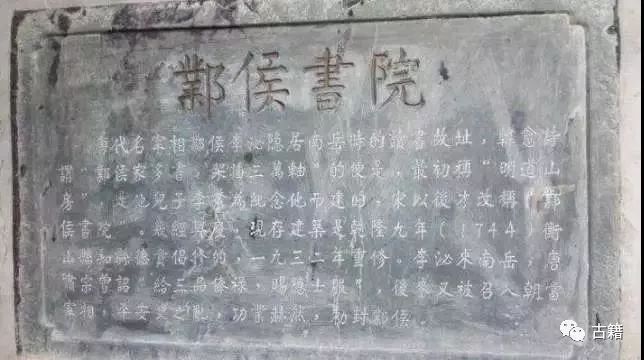 鄴侯書院
唐代名宰相鄴侯李泌隐居南岳時的讀書故址,韓愈詩
謂“鄴侯家多書,架插三萬軸”的便是,最初稱“明道山
房”,是他兒子李繁為紀念他而建的,宋以後才改稱“鄴
侯書院”。幾經興廢。現存建築是乾隆九年(1744)衡
山縣知德貴倡修的,一九三二年重修。李泌來南岳,唐
肅宗曾詔“給三品祿,賜隱士服”,後來又被召入朝當
宰相,平安史之亂,功業赫然,勅封鄴侯。
古籍